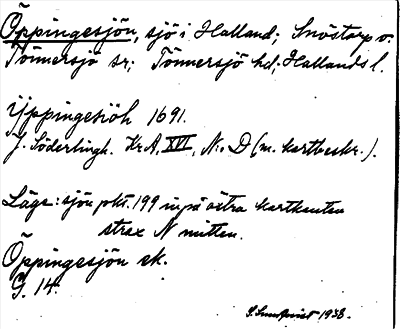 Öppingesjön, sjö i Halland; Snöstorp o.
Tönnersjö sr; Tönnersjö hd; Hallands l.
Yppingesiöh 1691.
J. Söderlingh. Kr.A, XVI, N:o D (m. kartbeskr.).
Läge: sjön pkt. 199 inpå östra kartkanten
strax N mitten.
Öppingesjön ek.
G. 14.
1938.